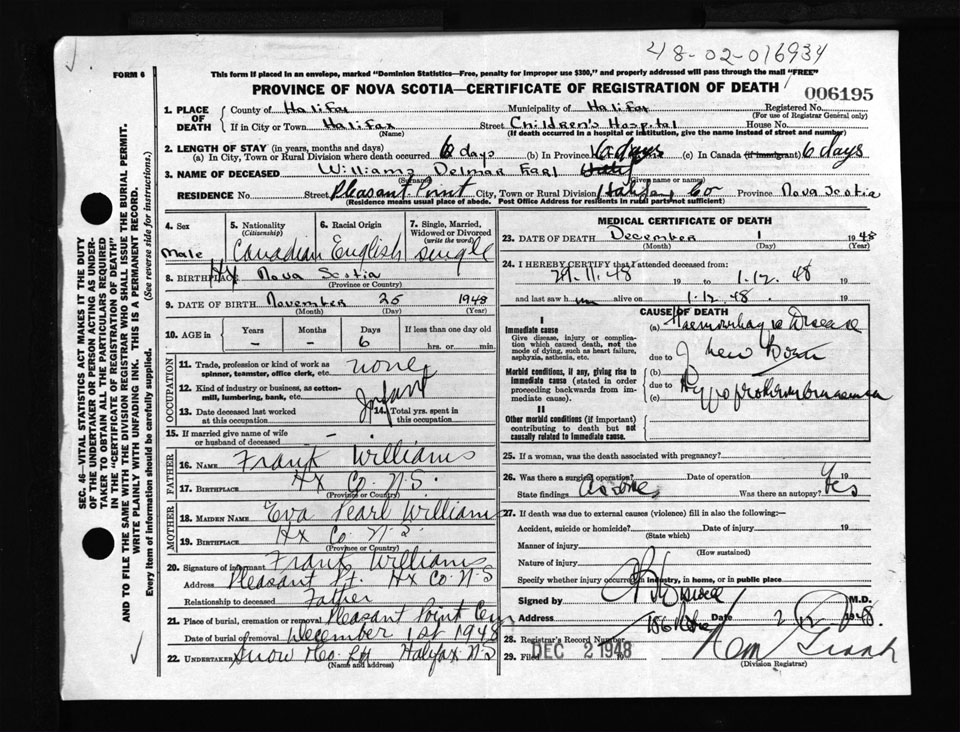 48-02-016934
FORM 6
This form if placed in an envelope, marked "Dominion Statistics—Free, penalty for improper use $300," and properly addressed will pass through the mail "FREE"
PROVINCE OF NOVA SCOTIA—CERTIFICATE OF REGISTRATION OF DEATH
006195
SEC. 46—VITAL STATISTICS ACT MAKES IT THE DUTY
OF THE UNDERTAKER OR PERSON ACTING AS UNDER-
TAKER TO OBTAIN ALL THE PARTICULARS REQUIRED
IN THE "CERTIFICATE OF REGISTRATION OF DEATH"
AND TO FILE THE SAME WITH THE DIVISION REGISTRAR WHO SHALL ISSUE THE BURIAL PERMIT.
WRITE PLAINLY WITH UNFADING INK. THIS IS A PERMANENT RECORD.
Every item of information should be carefully supplied. (See reverse side for instructions.)
1. PLACE OF DEATH County of Halifax Municipality of Halifax Registered No.
(For use of Registrar General only)
If in City or Town Halifax Street Children's Hospital House No.
(Name) (If death occurred in a hospital or institution, give the name instead of street and number)
2. LENGTH OF STAY (in years, months and days)
(a) In City, Town or Rural Division where death occurred 6 days (b) In Province 6 days (c) In Canada (if immigrant) 6 days
3. NAME OF DECEASED Williams Delmar Earl
(Given name or names)
RESIDENCE No. Street Pleasant Point City, Town or Rural Division Halifax Co Province Nova Scotia
(Residence means usual place of abode. Post Office Address for residents in rural parts not sufficient)
4. Sex 5. Nationality (Citizenship) 6. Racial Origin 7. Single, Married, Widowed or Divorced (write the word)
Male Canadian English single
8. BIRTHPLACE Hx Nova Scotia
(Province or Country)
9. DATE OF BIRTH November 25 1948
(Month) (Day) (Year)
10. AGE in Years Months Days If less than one day old
- - 6 hrs. or min.
OCCUPATION
11. Trade, profession or kind of work as spinner, teamster, office clerk, etc. none
12. Kind of industry or business, as cotton-mill, lumbering, bank, etc. Infant
13. Date deceased last worked at this occupation 14. Total yrs. spent in this occupation
15. If married give name of wife or husband of deceased -
FATHER
16. NAME Frank Williams
17. BIRTHPLACE Hx Co. N.S.
(Province or Country)
MOTHER
18. MAIDEN NAME Eva Pearl Williams
19. BIRTHPLACE Hx Co N S
(Province or Country)
20. Signature of informant Frank Williams
Address Pleasant Pt. Hx Co. N.S
Relationship to deceased Father
21. Place of burial, cremation or removal Pleasant Point Cem
Date of burial of removal December 1st 1948
22. UNDERTAKER Snow & Co. Ltd Halifax N.S
(Name and address)
MEDICAL CERTIFICATE OF DEATH
23. DATE OF DEATH December 1 1948
(Month) (Day) (Year)
24. I HEREBY CERTIFY that I attended deceased from:
29.11.48 19 to 1.12.48 19
and last saw him alive on 1.12.48. 19
I
Immediate cause
Give disease, injury or complication which caused death, not the mode of dying, such as heart failure, asphyxia, asthenia, etc.
Morbid conditions, if any, giving rise to immediate cause (stated in order proceeding backwards from immediate cause).
II
Other morbid conditions (if important) contributing to death but not causally related to immediate cause.
CAUSE OF DEATH
(a) Haemorrhagic Disease
due to of new born
(b)
due to Hypoprothrombinaemia
(c)
25. If a woman, was the death associated with pregnancy?
26. Was there a surgical operation? Date of operation 19
State findings as above Was there an autopsy? Yes
27. If death was due to external causes (violence) fill in also the following:—
Accident, suicide or homicide? Date of injury 19
(State which)
Manner of injury
(How sustained)
Nature of injury
Specify whether injury occurred in industry, in home, or in public place
Signed by M.D.
Address Date 2 12 1948.
28. Registrar's Record Number
29. Filed DEC 2 1948
(Division Registrar)